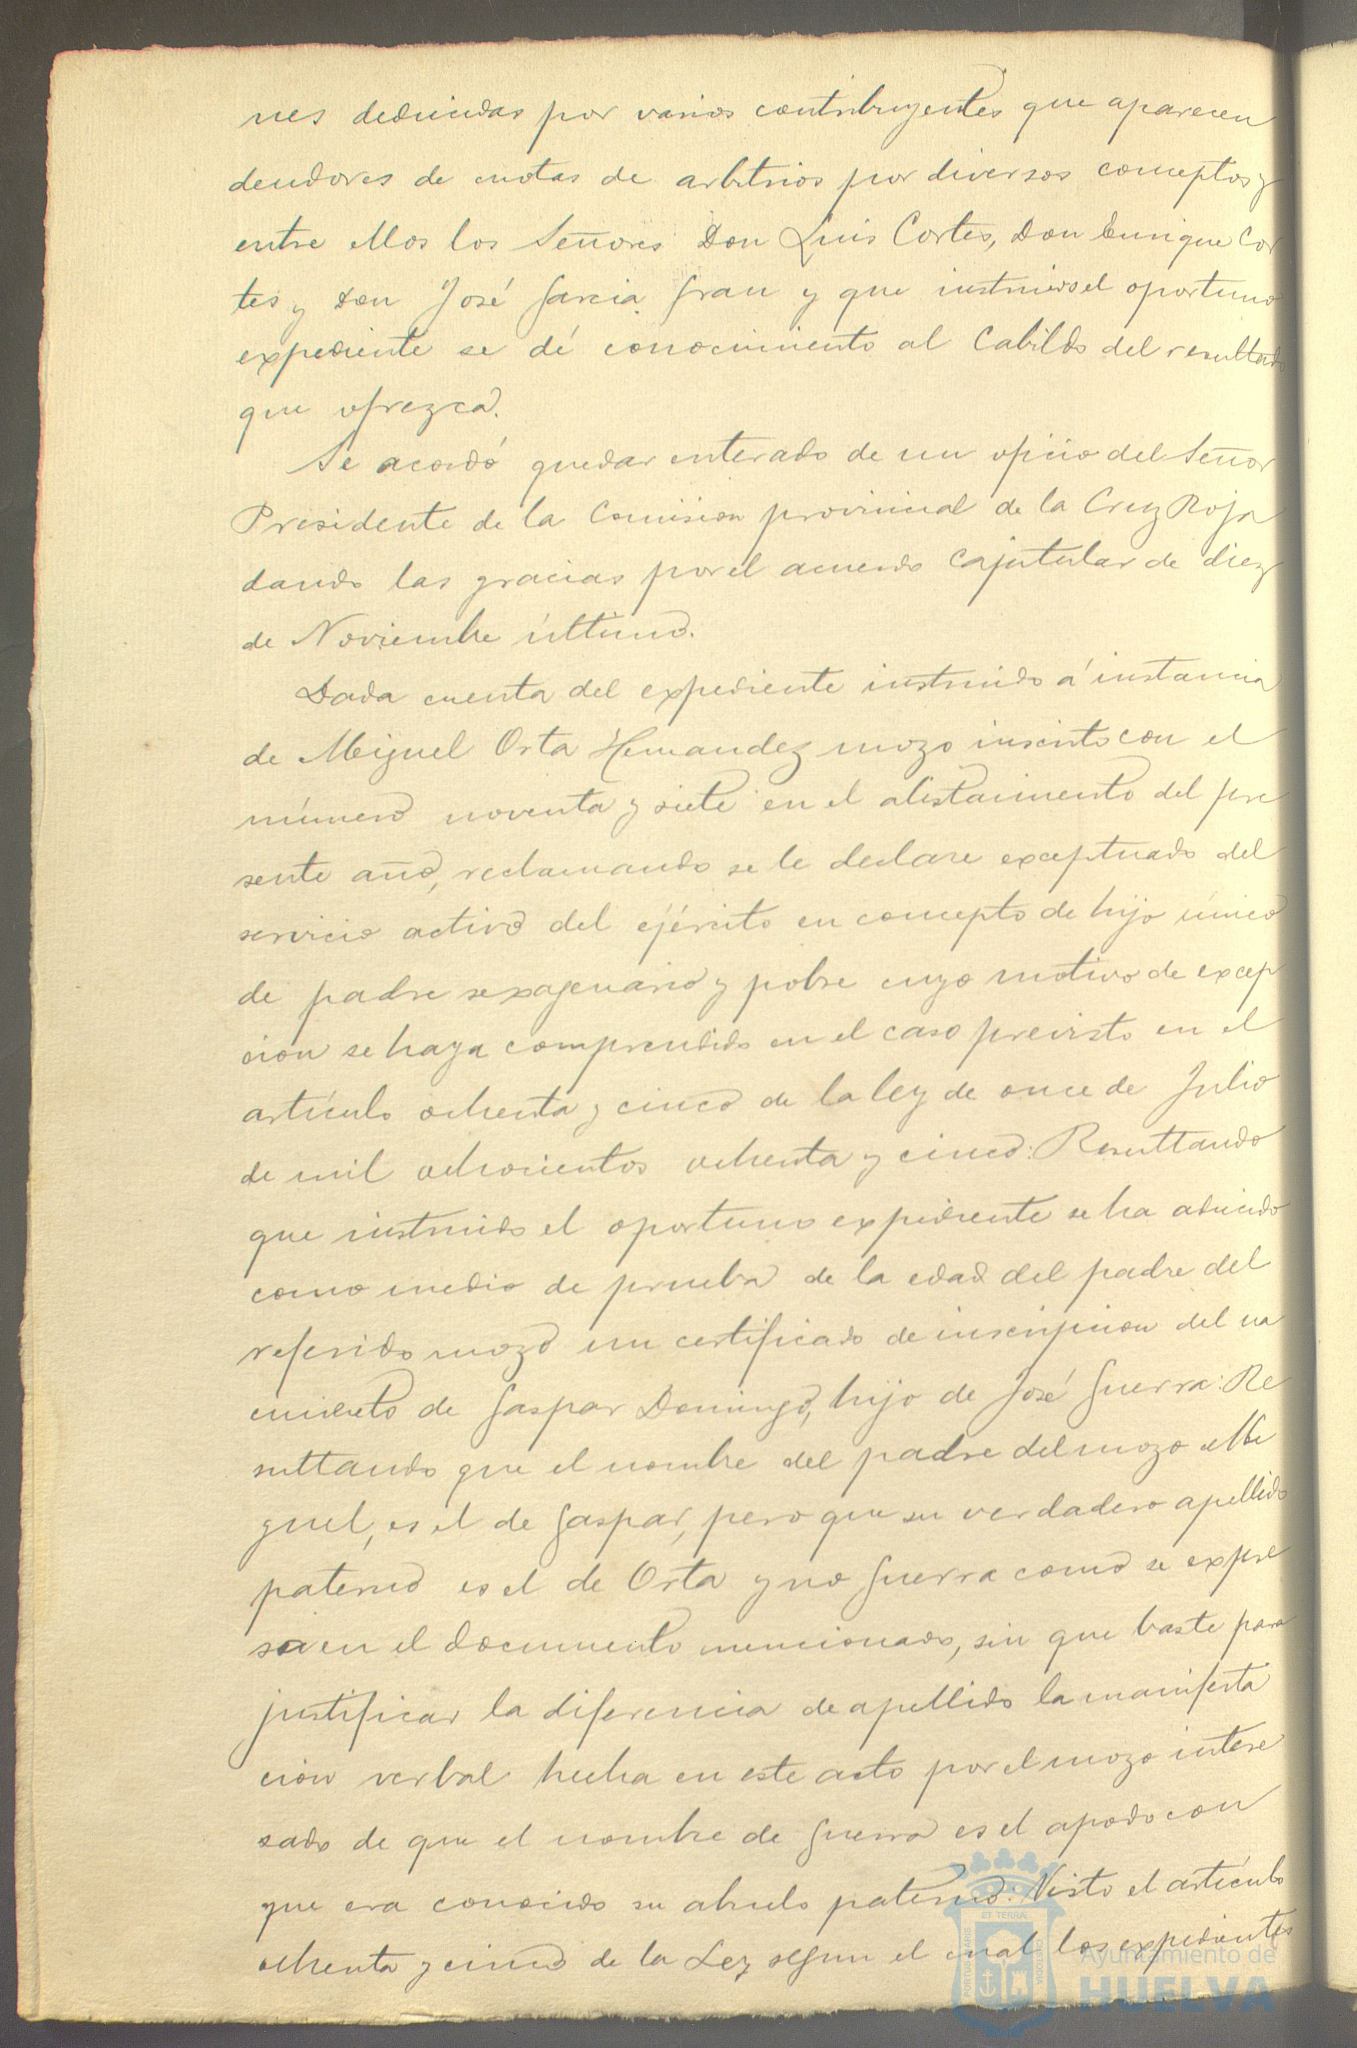 nes deducidas por varios contribuyentes que aparecen
deudores de cuotas de arbitrios por diversos conceptos y
entre ellos los Señores Don Luis Cortes, Don Enrique Cor
tes y Don José Garcia Grau y que instruirse el oportuno
expediente se dé conocimiento al Cabildo del resultado
que ofrezca.
Se acordó quedar enterado de un oficio del Señor
Presidente de la Comision provincial de la Cruz Roja
dando las gracias por el acuerdo capitular de diez
de Noviembre último.
Dada cuenta del expediente instruido á instancia
de Miguel Orta Hernandez mozo inscrito con el
número noventa y siete en el alistamiento del pre
sente año, reclamando se le declare exceptuado del
servicio activo del ejército en concepto de hijo único
de padre sexagenario y pobre cuyo motivo de excep
cion se haya comprendido en el caso previsto en el
artículo ochenta y cinco de la ley de once de Julio
de mil ochocientos ochenta y cinco: Resultando
que instruido el oportuno expediente se ha aducido
como medio de prueba de la edad del padre del
referido mozo un certificado de inscripcion del na
cimiento de Gaspar Domingo, hijo de José Guerra: Re
sultando que el nombre del padre del mozo Mi
guel, es el de Gaspar, pero que su verdadero apellido
paterno es el de Orta y no Guerra como se expre
sa en el documento mencionado, sin que baste para
justificar la diferencia de apellido la manifesta
cion verbal hecha en este acto por el mozo intere
sado de que el nombre de Guerra es el apodo con
que era conocido su abuelo paterno: Visto el artículo
ochenta y cinco de la Ley segun el cual los expedientes
Ayuntamiento de
HUELVA